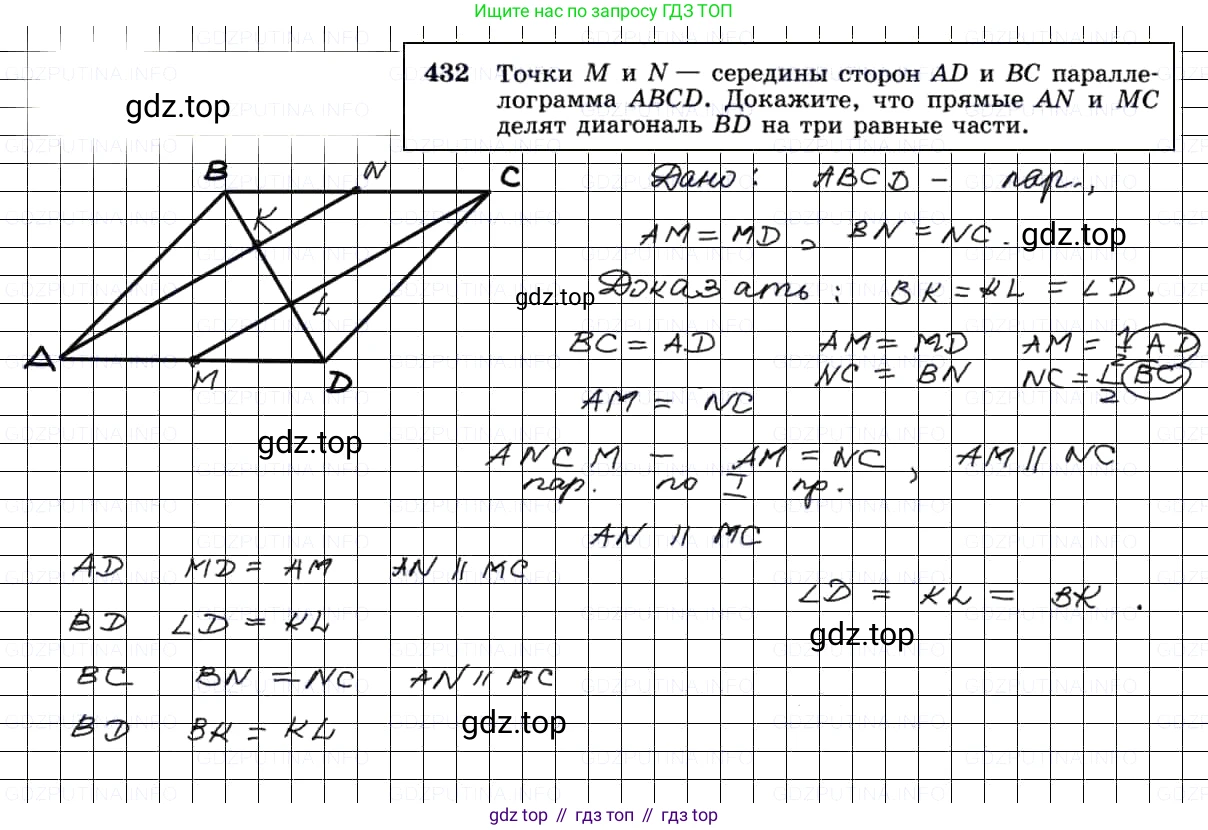 Ищите нас по запросу ГДЗ ТОП
432 Точки M и N — середины сторон AD и BC паралле-
лограмма ABCD. Докажите, что прямые AN и MC
делят диагональ BD на три равные части.
gdz.top
B N C
K
L
A M D
Дано: ABCD - пар.,
AM = MD, BN = NC. gdz.top
gdz.top Доказать: BK = KL = LD.
BC = AD AM = MD AM = 1/2 AD
NC = BN NC = 1/2 BC
AM = NC
gdz.top
ANCM — AM = NC, AM || NC
пар. по I пр.
AN || MC
AD MD = AM AN || MC
LD = KL = BK.
BD LD = KL
gdz.top
BC BN = NC AN || MC
BD BK = KL
gdz.top
gdz top // гдз топ // gdz top
GDZPUTINA.INFO